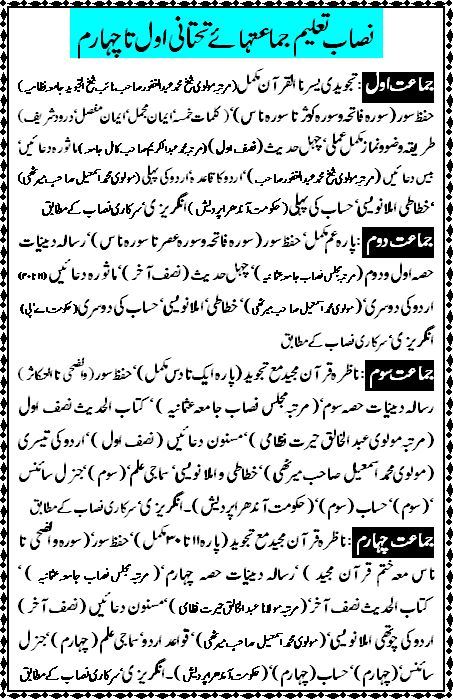 نصاب تعلیم جماعتہائے تحتانی اول تا چہارم
جماعت اول : تجویدی یسرنا القرآن مکمل (مرتبہ مولوی شیخ محمد عبدالغفور صاحب نائب شیخ التجوید جامعہ نظامیہ)
حفظ سور (سورہ فاتحہ و سورہ کوثر تا سورہ ناس)‘ (کلمات خمسہ‘ ایمان مجمل‘ ایمان مفصل‘ درود شریف)
طریقہ وضو و نماز مکمل عملی‘ چہل حدیث (نصف اول) (مرتبہ محمد عبدالکریم صاحب کامل جامعہ) ماثورہ دعائیں‘
بیس دعائیں (مرتبہ مولوی شیخ محمد عبدالغفور صاحب)‘ اردو کا قاعدہ‘ اردو کی پہلی (مولوی محمد اسمعیل صاحب میرٹھی)
‘ خطاطی‘ املا نویسی‘ حساب کی پہلی (حکومت آندھراپردیش) انگریزی‘ سرکاری نصاب کے مطابق
جماعت دوم : پارہ عم مکمل‘ حفظ سور (سورہ فاتحہ و سورہ عصر تا سورہ ناس)‘ رسالہ دینیات
حصہ اول و دوم (مرتبہ مجلس نصاب جامعہ عثمانیہ)‘ چہل حدیث (نصف آخر)‘ ماثورہ دعائیں (۲۱ تا ۴۰)
اردو کی دوسری‘ (مولوی محمد اسمعیل صاحب میرٹھی)‘ خطاطی‘ املا نویسی‘ حساب کی دوسری (حکومت اے پی)
انگریزی‘ سرکاری نصاب کے مطابق
جماعت سوم : ناظرہ قرآن مجید مع تجوید (پارہ ایک تا دس مکمل)‘ حفظ سور (والضحی تا التکاثر)
رسالہ دینیات حصہ سوم‘ (مرتبہ مجلس نصاب جامعہ عثمانیہ)‘ کتاب الحدیث نصف اول
(مرتبہ مولوی عبدالخالق حیرت نظامی)‘ مسنون دعائیں (نصف اول)‘ اردو کی تیسری
(مولوی محمد اسمعیل صاحب میرٹھی)‘ خطاطی و املا نویسی‘ سماجی علم (سوم)‘ جنرل سائنس
‘ (سوم)‘ حساب (سوم)‘ (حکومت آندھراپردیش)۔ انگریزی‘ سرکاری نصاب کے مطابق
جماعت چہارم : ناظرہ قرآن مجید مع تجوید (پارہ ۱۱ تا ۳۰ مکمل)‘ حفظ سور‘ (سورہ والضحی تا
ناس معہ ختم قرآن مجید)‘ رسالہ دینیات حصہ چہارم‘ (مرتبہ مجلس نصاب جامعہ عثمانیہ)‘
کتاب الحدیث نصف آخر‘ (مرتبہ مولانا عبدالخالق حیرت نظامی)‘ مسنون دعائیں (نصف آخر)
اردو کی چوتھی‘ املا نویسی‘ (مولوی محمد اسمعیل صاحب میرٹھی)‘ قواعد اردو‘ سماجی علم (چہارم)‘ جنرل
سائنس‘ (چہارم)‘ حساب (چہارم)‘ (حکومت آندھراپردیش)۔ انگریزی‘ سرکاری نصاب کے مطابق